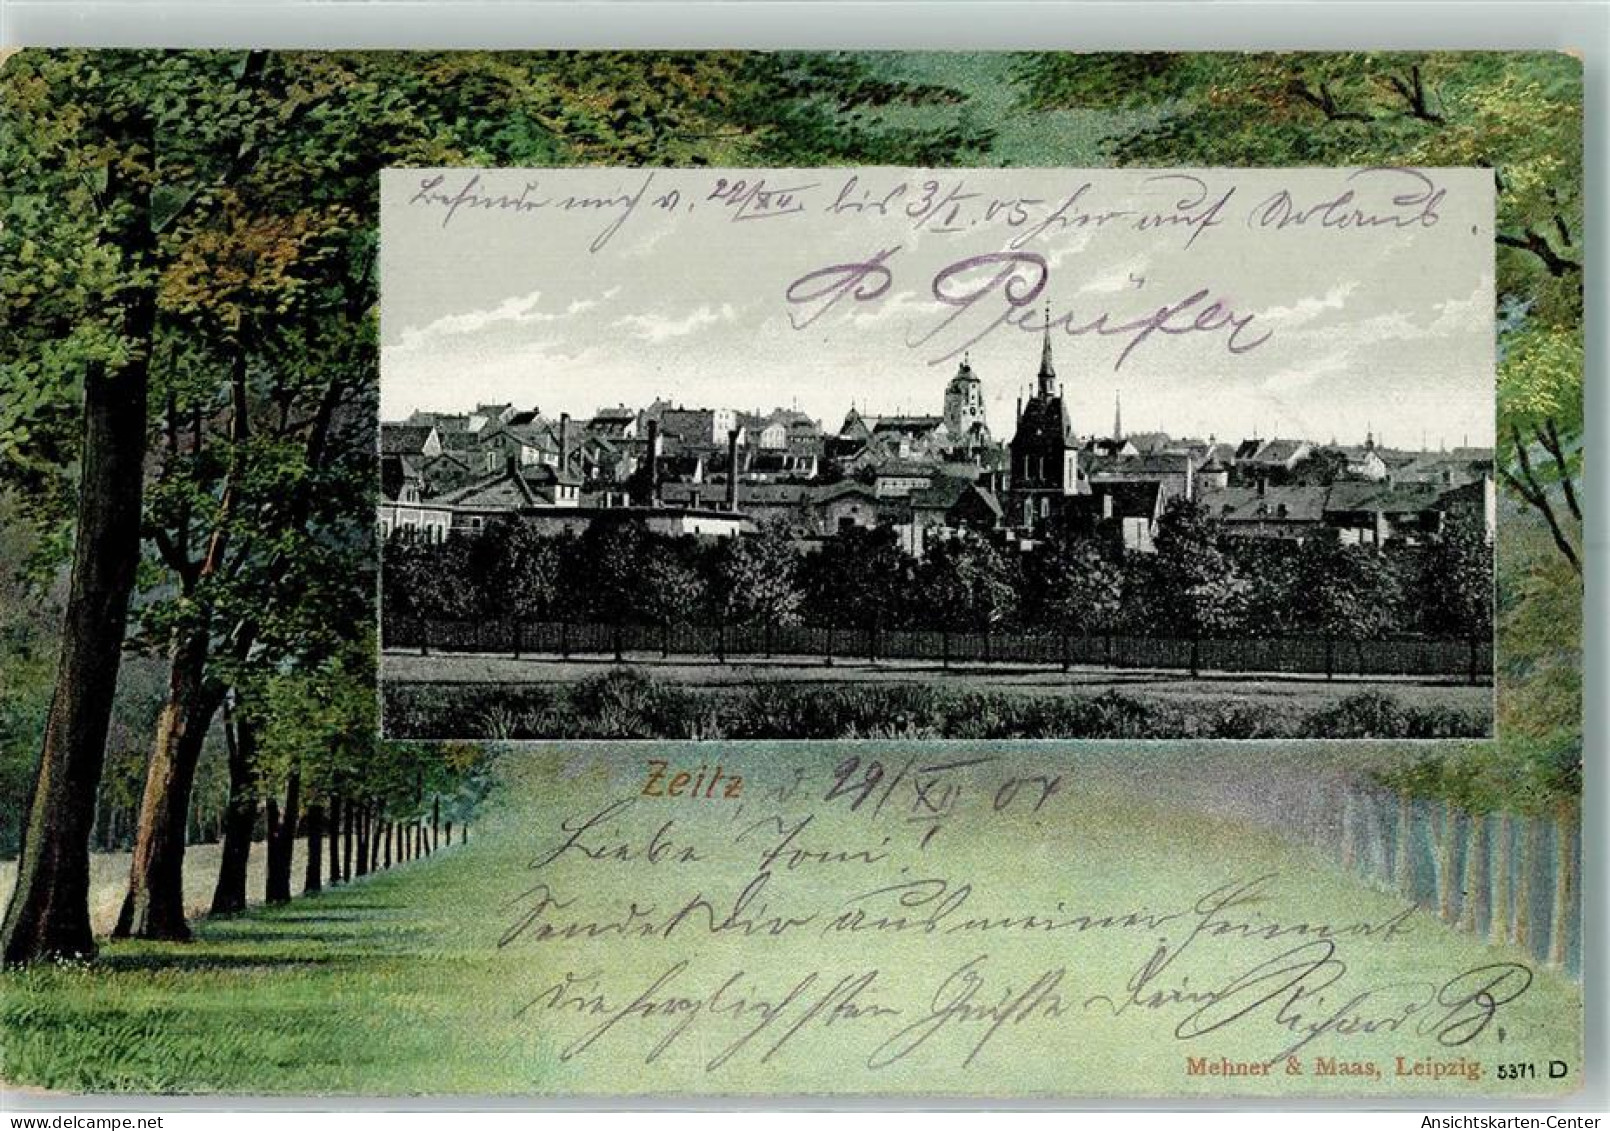 Befinde mich v. 29/XII. bis 3/I. 05 hier auf Urlaub.
P
Zeitz, d. 29/XII 04
Liebe Toni!
Sendet Dir aus meiner Heimat
die herzlichsten Grüsse Dein Richard B.
Mehner & Maas, Leipzig. 5371 D
Ansichtskarten-Center